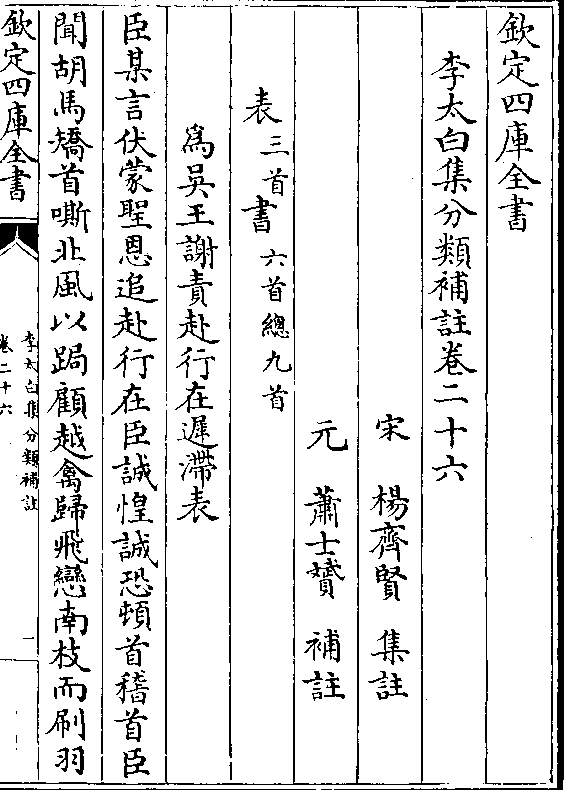 欽定四庫全書
李太白集分類補註卷二十六
宋 楊齊賢 集註
元 蕭士贇 補註
表三首書六首總九首
為吳王謝責赴行在遲滯表
臣某言伏蒙聖恩追赴行在臣誠惶誠恐頓首稽首臣
聞胡馬矯首嘶北風以跼顧越禽歸飛戀南枝而刷羽
欽定四庫全書
李太白集分類補註
卷二十六
一